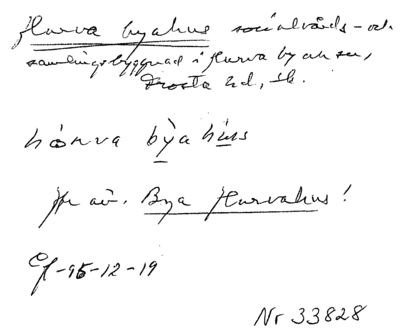 Hurva byahus socialvårds- och
samlingsbyggnad i Hurva by och sn,
Frosta hd, Sk.
hòrva bỳahús
Jfr äv. Bya Hurvahus!
-95-12-19
Nr 33828